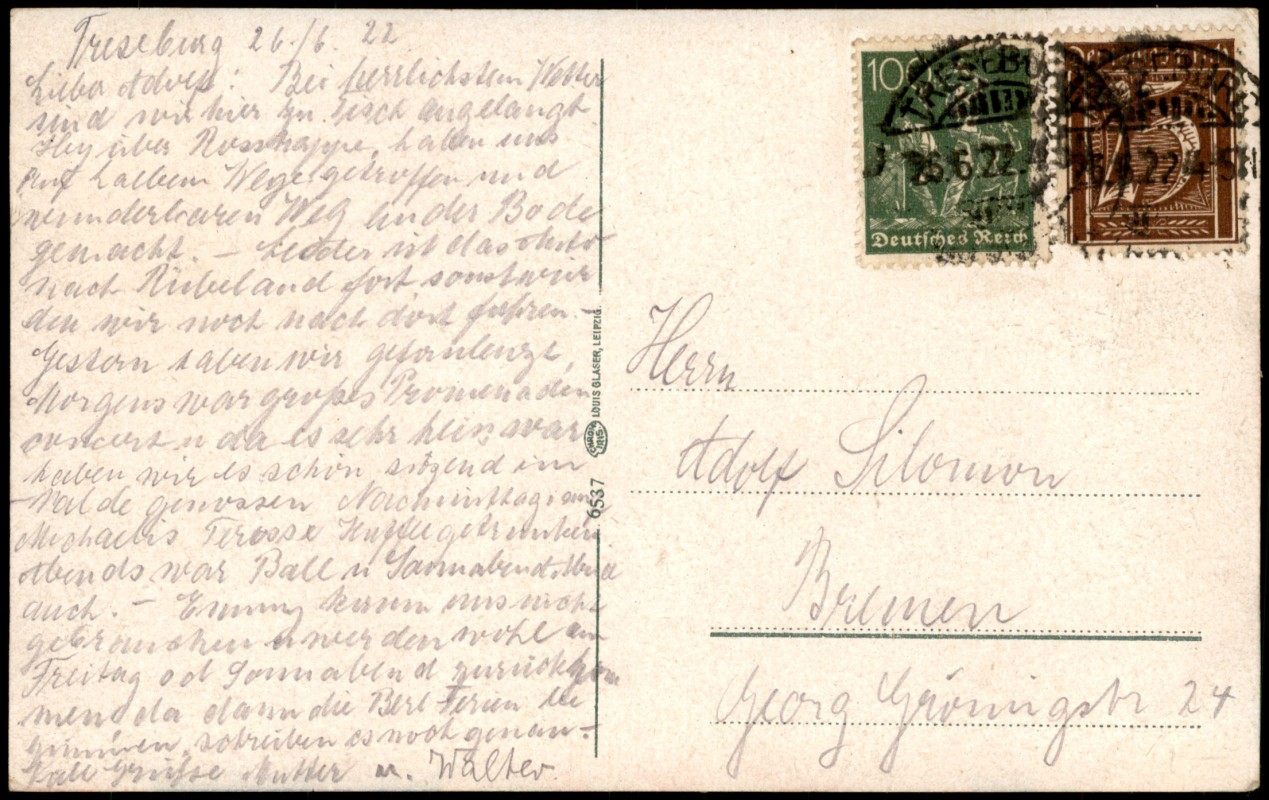 Treseburg 26./6. 22
Lieber Adolf! Bei herrlichstem Wetter
sind wir hier zu Tisch angelangt.
über Rosstrappe, haben uns
auf halbem Wege getroffen und
wunderbaren Weg an der Bode
gemacht. – Leider ist das Auto
nach Rübeland fort sonst wür
den wir noch nach dort fahren –
Gestern haben wir gefaulenzt,
Morgens war großes Promenaden
concert u da es sehr heiss war
haben wir es schön sitzend im
Walde genossen Nachmittags
Michaelis Terasse Kaffe getrunken
Abends war Ball u Sonnabend Abend
auch. – Emmy kann uns nicht
gebrauchen u werden wohl am
Freitag od Sonnabend zurückkom
men da dann die Berl Ferien be
ginnen, schreiben es noch genau –
Grüsse Mutter u. Walter.
6537
CHROMO IRIS
LOUIS GLASER, LEIPZIG.
100
Deutsches Reich
TRESEBURG
26.6.22.
26.6.22 4-5N
Herrn
Adolf Silomon
Bremen
Georg Gröningstr 24